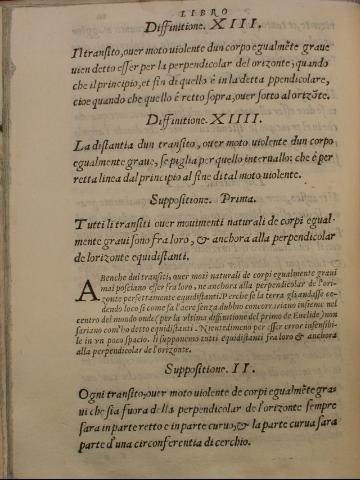 LIBRO
Diffinitione. XIII.
Il transito, ouer moto uiolente dun corpo egualmẽte graue
uien detto esser per la perpendicolar del orizonte; quando
che il principio, et fin di quello è in la detta ppendicolare,
cioe quando che quello è retto sopra, ouer sotto al orizõte.
Diffinitione. XIIII.
La distantia dun transito, ouer moto uiolente dun corpo
egualmente graue, se piglia per quello interuallo: che è per
retta linea dal principio al fine di tal moto uiolente.
Suppositione. Prima.
Tutti li transiti ouer mouimenti naturali de corpi egual-
mente graui sono fra loro, & anchora alla perpendicolar
de lorizonte equidistanti.
ABenche dui transiti, ouer moti naturali de corpi egualmente graui
mai posciano esser fra loro, ne anchora alla perpendicolar de l'ori-
zonte perfettamente equidistanti. Perche se la terra gli andasse ce-
dendo loco si come fa l'aere senza dubbio concorrariano insieme nel
centro del mondo onde (per la ultima diffinitione del primo de Euclide) non
sariano com'ho detto equidistanti. Neentedimeno per esser errore insensibi-
le in vn poco spacio. li supponemo tutti equidistanti fra loro & anchora
alla perpendicolar de l'orizonte.
Suppositione. II.
Ogni transito, ouer moto uiolente de corpi egualmẽte gra-
ui che sia fuora della perpendicolar de l'orizonte sempre
sara in parte retto e in parte curuo, & la parte curua sara
parte d'una circonferentia di cerchio.